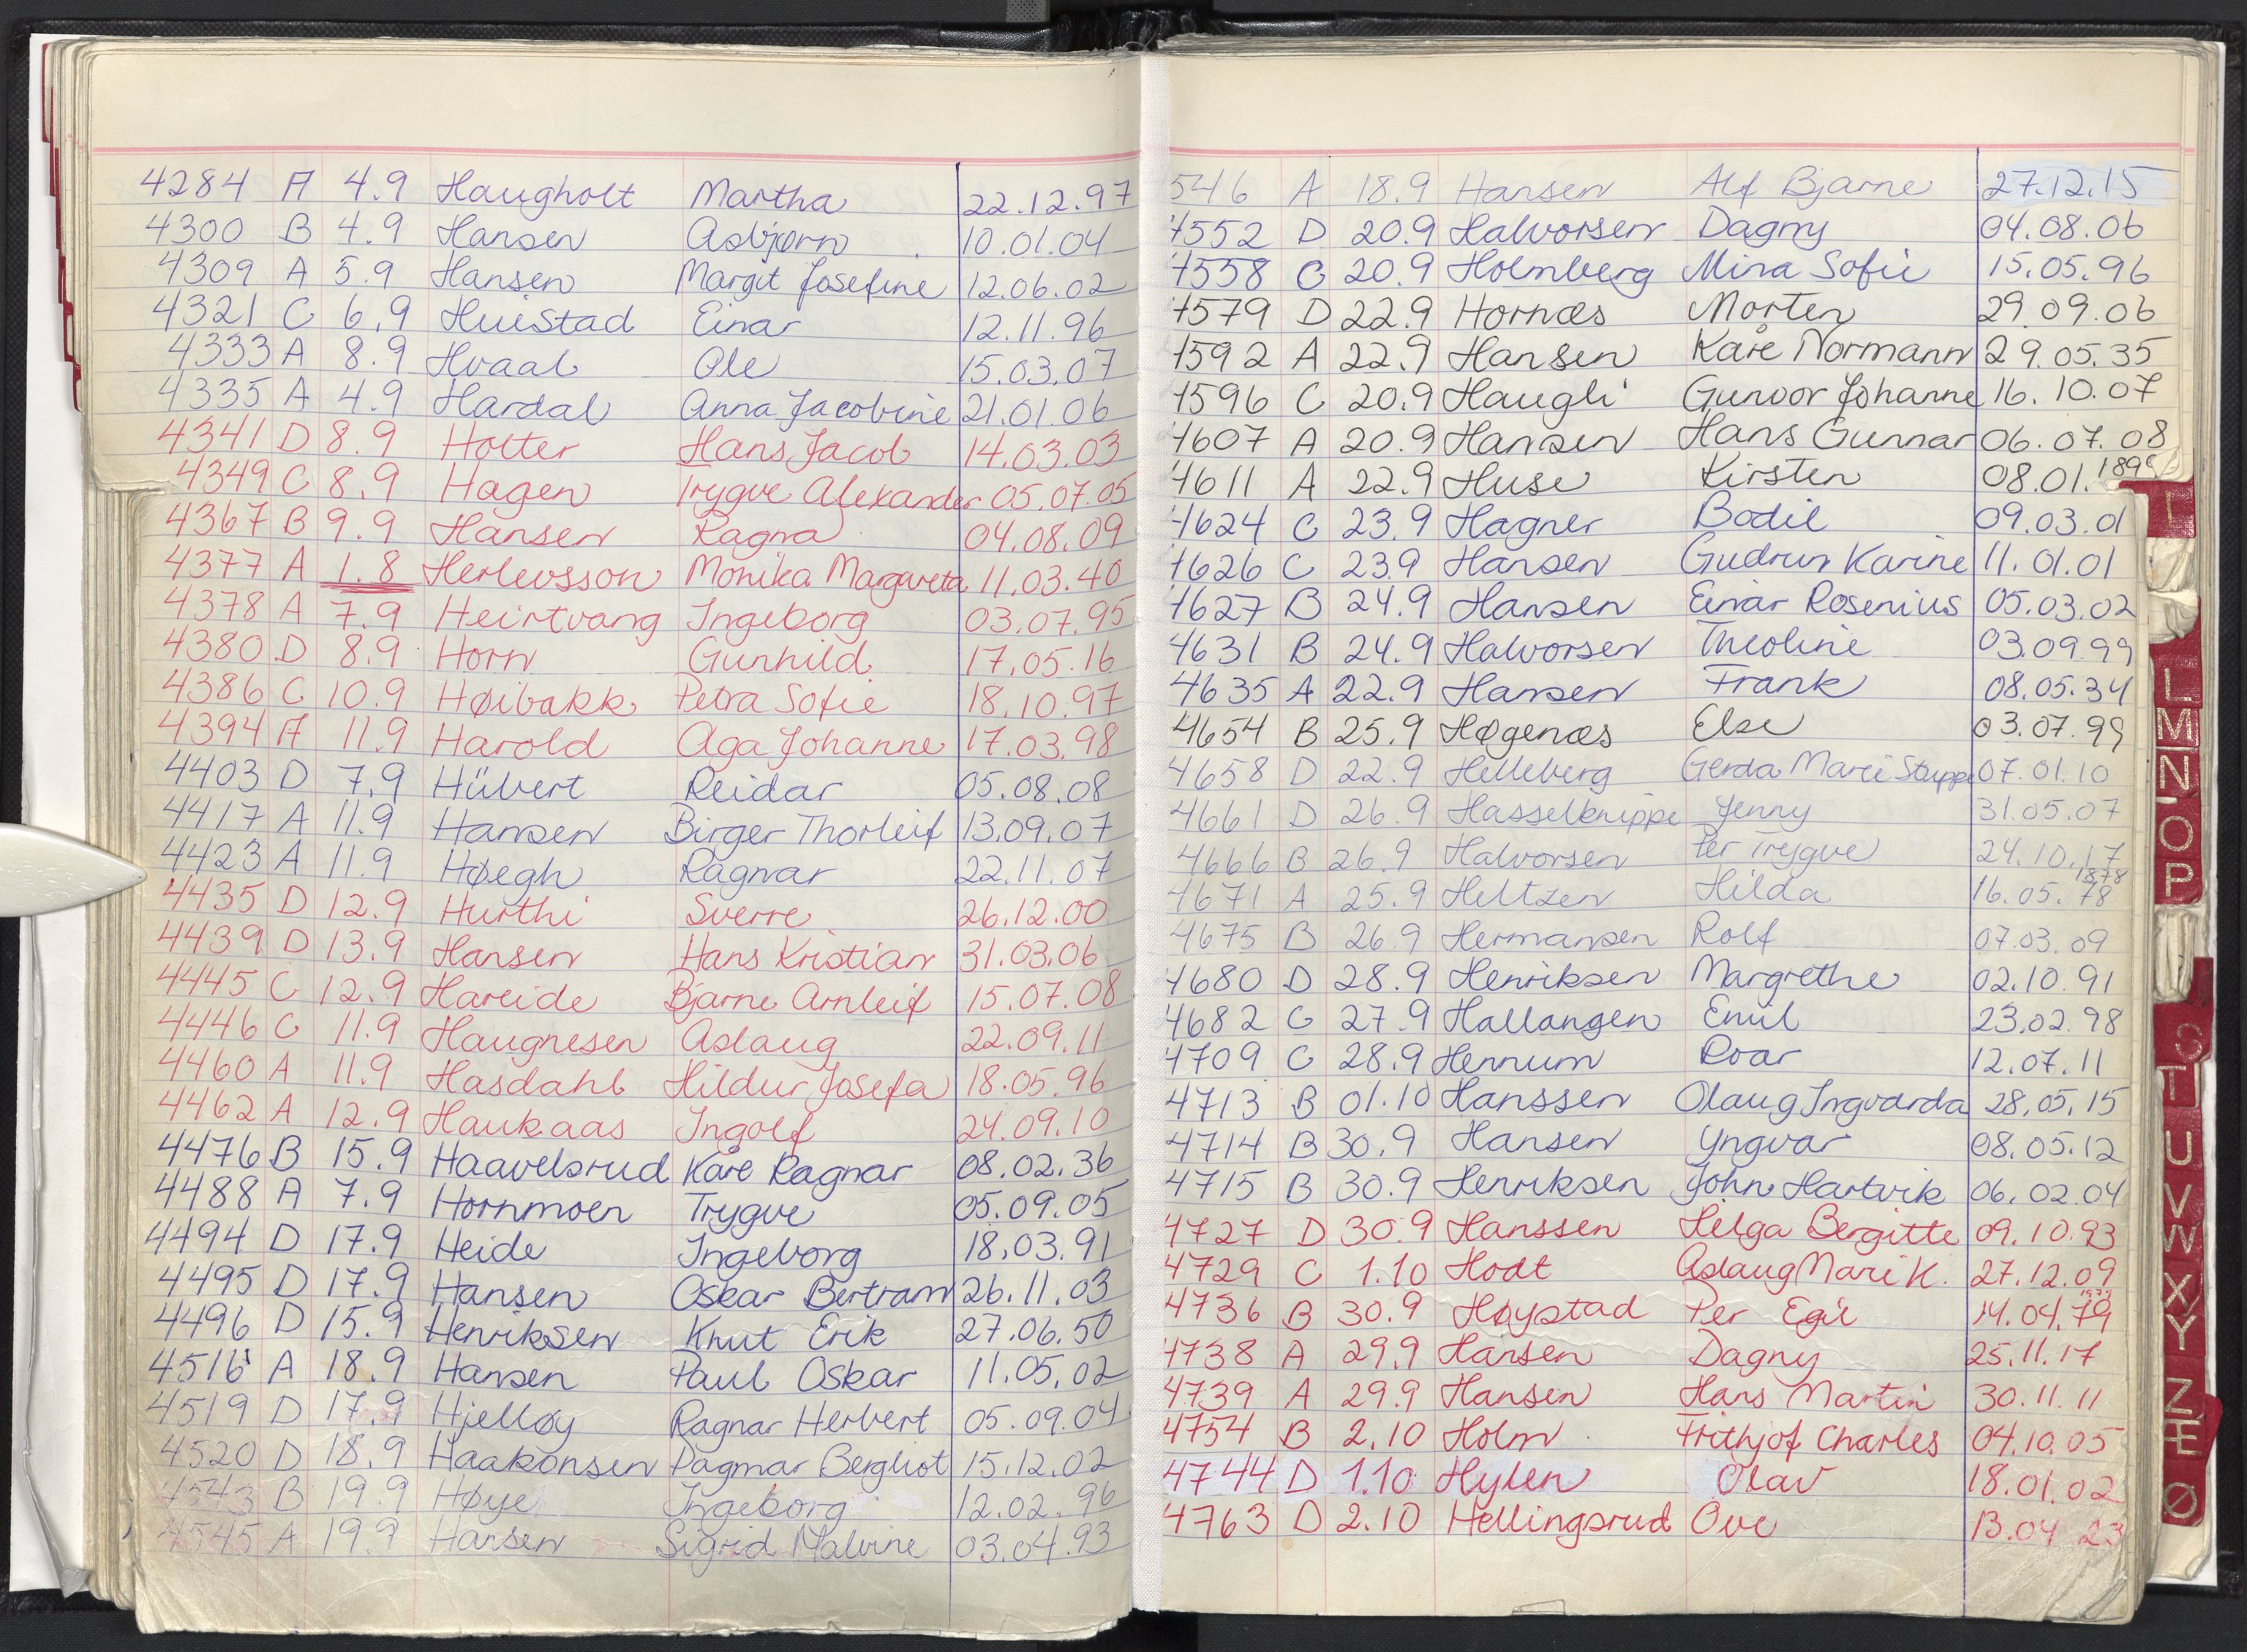 4284 A 4.9 Haugholt Martha 22.12.97
4300 B 4.9 Hansen Asbjørn 10.01.04
4309 A 5.9 Hansen Margit Josefine 12.06.02
4321 C 6.9 Huistad Einar 12.11.96
4333 A 8.9 Hvaal Ole 15.03.07
4335 A 4.9 Hardal Anna Jacobine 21.01.06
4341 D 8.9 Holter Hans Jacob 14.03.03
4349 C 8.9 Hagen Trygve Alexander 05.07.05
4367 B 9.9 Hansen Ragna 04.08.09
4377 A 1.8 Herlevsson Monika Margareta 11.03.40
4378 A 7.9 Heirtvang Ingeborg 03.07.95
4380 D 8.9 Horn Gunhild 17.05.16
4386 C 10.9 Høibakk Petra Sofie 18.10.97
4394 A 11.9 Harold Aga Johanne 17.03.98
4403 D 7.9 Hübert Reidar 05.08.08
4417 A 11.9 Hansen Birger Thorleif 13.09.07
4423 A 11.9 Høegh Ragnar 22.11.07
4435 D 12.9 Hurthi Sverre 26.12.00
4439 D 13.9 Hansen Hans Kristian 31.03.06
4445 C 12.9 Hareide Bjarne Arnleif 15.07.08
4446 C 11.9 Haugnesen Aslaug 22.09.11
4460 A 11.9 Hasdahl Hildur Josefa 18.05.96
4462 A 12.9 Haukaas Ingolf 24.09.10
4476 B 15.9 Haavelsrud Kåre Ragnar 08.02.36
4488 A 7.9 Hornmoen Trygve 05.09.05
4494 D 17.9 Heide Ingeborg 18.03.91
4495 D 17.9 Hansen Oskar Bertram 26.11.03
4496 D 15.9 Henriksen Knut Erik 27.06.50
4516 A 18.9 Hansen Paul Oskar 11.05.02
4519 D 17.9 Hjelløy Ragnar Herbert 05.09.04
4520 D 18.9 Haakonsen Dagmar Bergliot 15.12.02
4543 B 19.9 Høye Ingeborg 12.02.96
4545 A 19.9 Hansen Sigrid Malvine 03.04.93
546 A 18.9 Hansen Alf Bjarne 27.12.15
4552 D 20.9 Halvorsen Dagny 04.08.06
4558 C 20.9 Holmberg Mina Sofie 15.05.96
4579 D 22.9 Hornæs Morten 29.09.06
4592 A 22.9 Hansen Kåre Normann 29.05.35
4596 C 20.9 Haugli Gunvor Johanne 16.10.07
4607 A 20.9 Hansen Hans Gunnar 06.07.08
4611 A 22.9 Huse Kirsten 08.01.
4624 C 23.9 Hagner Bodil 09.03.01
4626 C 23.9 Hansen Gudrun Karine 11.01.01
4627 B 24.9 Hansen Einar Rosenius 05.03.02
4631 B 24.9 Halvorsen Theoline 03.09.99
4635 A 22.9 Hansen Frank 08.05.34
4654 B 25.9 Høgenæs Else 03.07.99
4658 D 22.9 Helleberg Gerda Marie Stuppe 07.01.10
4661 D 26.9 Hasselknippe Jenny 31.05.07
4666 B 26.9 Halvorsen Per Trygve 24.10.17
4671 A 25.9 Heltzen Hilda 16.05.78 1878
4675 B 26.9 Hermansen Rolf 07.03.09
4680 D 28.9 Henriksen Margrethe 02.10.91
4682 C 27.9 Hallangen Emil 23.02.98
4709 C 28.9 Hennum Roar 12.07.11
4713 B 01.10 Hanssen Olaug Ingvarda 28.05.15
4714 B 30.9 Hansen Yngvar 08.05.12
4715 B 30.9 Henriksen John Hartvik 06.02.04
4727 D 30.9 Hanssen Helga Bergitte 09.10.93
4729 C 1.10 Hodt Aslaug Mari K. 27.12.09
4736 B 30.9 Høystad Per Egil 14.04.79
4738 A 29.9 Hansen Dagny 25.11.17
4739 A 29.9 Hansen Hans Martin 30.11.11
4754 B 2.10 Holm Frithjof Charles 04.10.05
4744 D 1.10 Hylen Olav 18.01.02
4763 D 2.10 Hellingsrud Ove 13.04 23
I
L
M
N
O
P
S
T
U
V
W
X
Y
Z
Æ
Ø